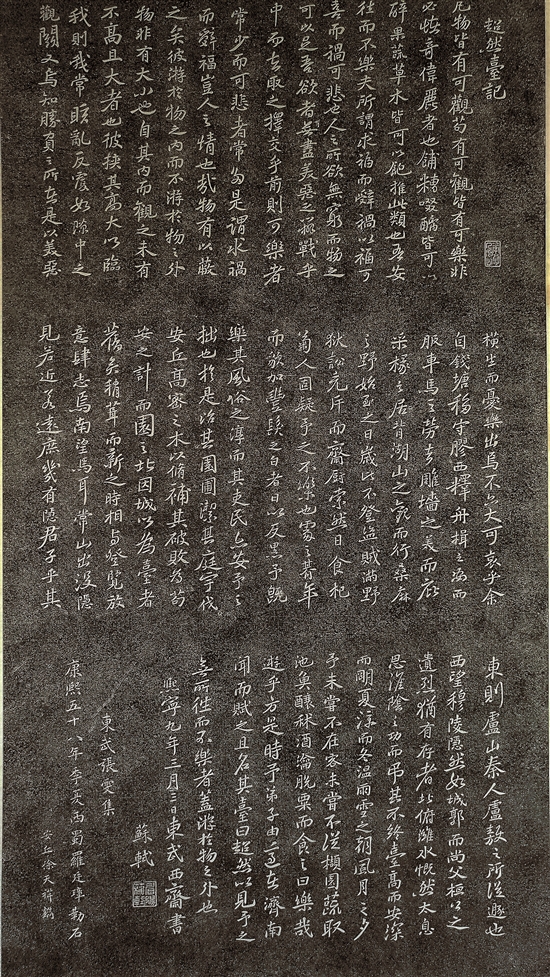 超然臺記
凡物皆有可觀苟有可觀皆有可樂非
必怪奇偉麗者也餔糟啜醨皆可以
醉果蔬草木皆可以飽推此類也吾安
往而不樂夫所謂求福而辭禍以福可
喜而禍可悲也人之所欲無窮而物之
可以足吾欲者有盡美惡之辨戰乎
中而去取之擇交乎前則可樂者
常少而可悲者常多是謂求禍
而辭福豈人之情也哉物有以蔽
之矣彼游於物之內而不游於物之外
物非有大小也自其內而觀之未有
不高且大者也彼挾其高大以臨
我則我常眩亂反覆如隙中之
觀鬪又烏知勝負之所在是以美惡
橫生而憂樂出焉不亦大可哀乎余
自錢塘移守膠西釋舟楫之安而
服車馬之勞去雕墻之美而庇
采椽之居背湖山之觀而行桑麻
之野始至之日歲比不登盜賊滿野
獄訟充斥而齋廚索然日食杞
菊人固疑予之不樂也處之朞年
而貌加豐髮之白者日以反黑予既
樂其風俗之淳而其吏民亦安予之
拙也於是治其園圃潔其庭宇伐
安丘高密之木以脩補其破敗為苟
安之計而園之北因城以為臺者
舊矣稍葺而新之時相與登覽放
意肆志焉南望馬耳常山出沒隱
見若近若遠庶幾有隱君子乎其
東則盧山秦人盧敖之所從遯也
西望穆陵隱然如城郭而尚父桓公之
遺烈猶有存者北俯濰水慨然太息
思淮陰之功而弔其不終臺高而安深
而明夏涼而冬溫雨雪之朝風月之夕
予未嘗不在客未嘗不從擷園蔬取
池魚釀秫酒瀹脫粟而食之曰樂哉
遊乎方是時予弟子由適在濟南
聞而賦之且名其臺曰超然以見予之
無所往而不樂者蓋游於物之外也
熙寧九年三月三日東武西齋書
蘇軾
東武張雯集
康熙五十八年季夏西蜀羅廷璋勒石
安丘徐天祥鐫